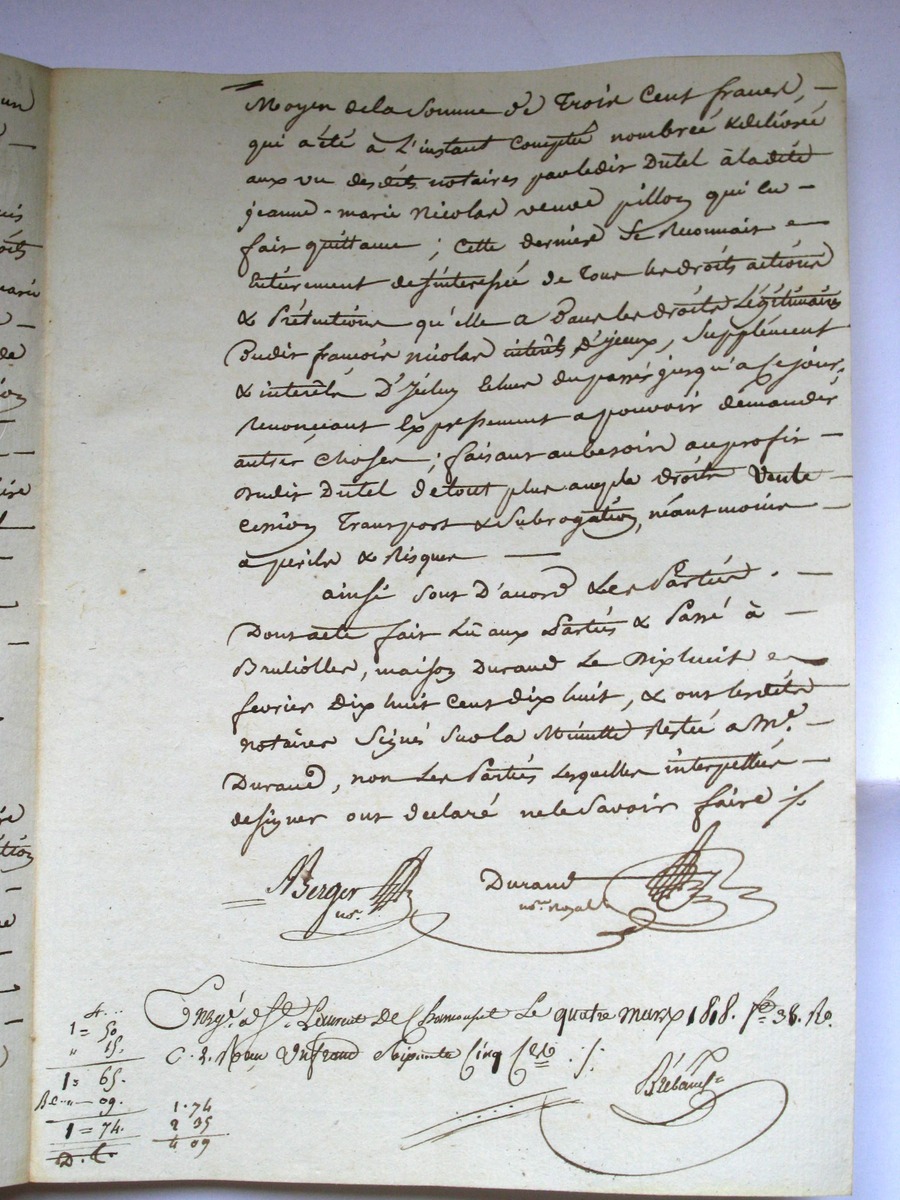 Moyen de la Somme de Trois Cent francs, —
qui a été à L'instant Comptée nombrée & délivrée
aux vu desdits notaires par ledit Dutel à ladite
jeanne-marie Nicolas veuve pillon qui en —
fait quittance ; Cette derniere Se Reconnait
Entierement desinteressée de Tous les droits actions
& Prétentions qu'elle a Dans les droits Légitimaires
Dudit francois nicolas intérêts d'yceux, Supplément
& interêts D'Icelui Echus du passé jusqu'a ce jour,
Renonçant Expressement a pouvoir demander
autres choses ; faisant au besoin au profit —
Dudit Dutel de tout plus ample droits Vente —
cession Transport & Subrogation, néantmoins —
a perils & Risques —
ainsi Sont D'accord Les Parties . —
Dont acte fait Lû aux Parties & Passé à —
Brullioles, maison Durand Le Dix huit
fevrier Dix huit Cent dix huit, & ont lesdits
notaires Signés Sur la Minutte Restée a Me. —
Durand, non Les Parties Lesquelles interpellées —
de signer ont declaré ne le Savoir faire ./.
Berger
nore.
Durand
nore. Royal
Enregé. a St. Laurent De Chamousset Le quatre mars 1818. fo. 38. Ro.
C. 2. Reçu Un franc Soixante Cinq Ces ./.
4...
1 = 50
" 15.
1 = 65.
09.
1 = 74.
D. C.
1.74
2 35
4 09